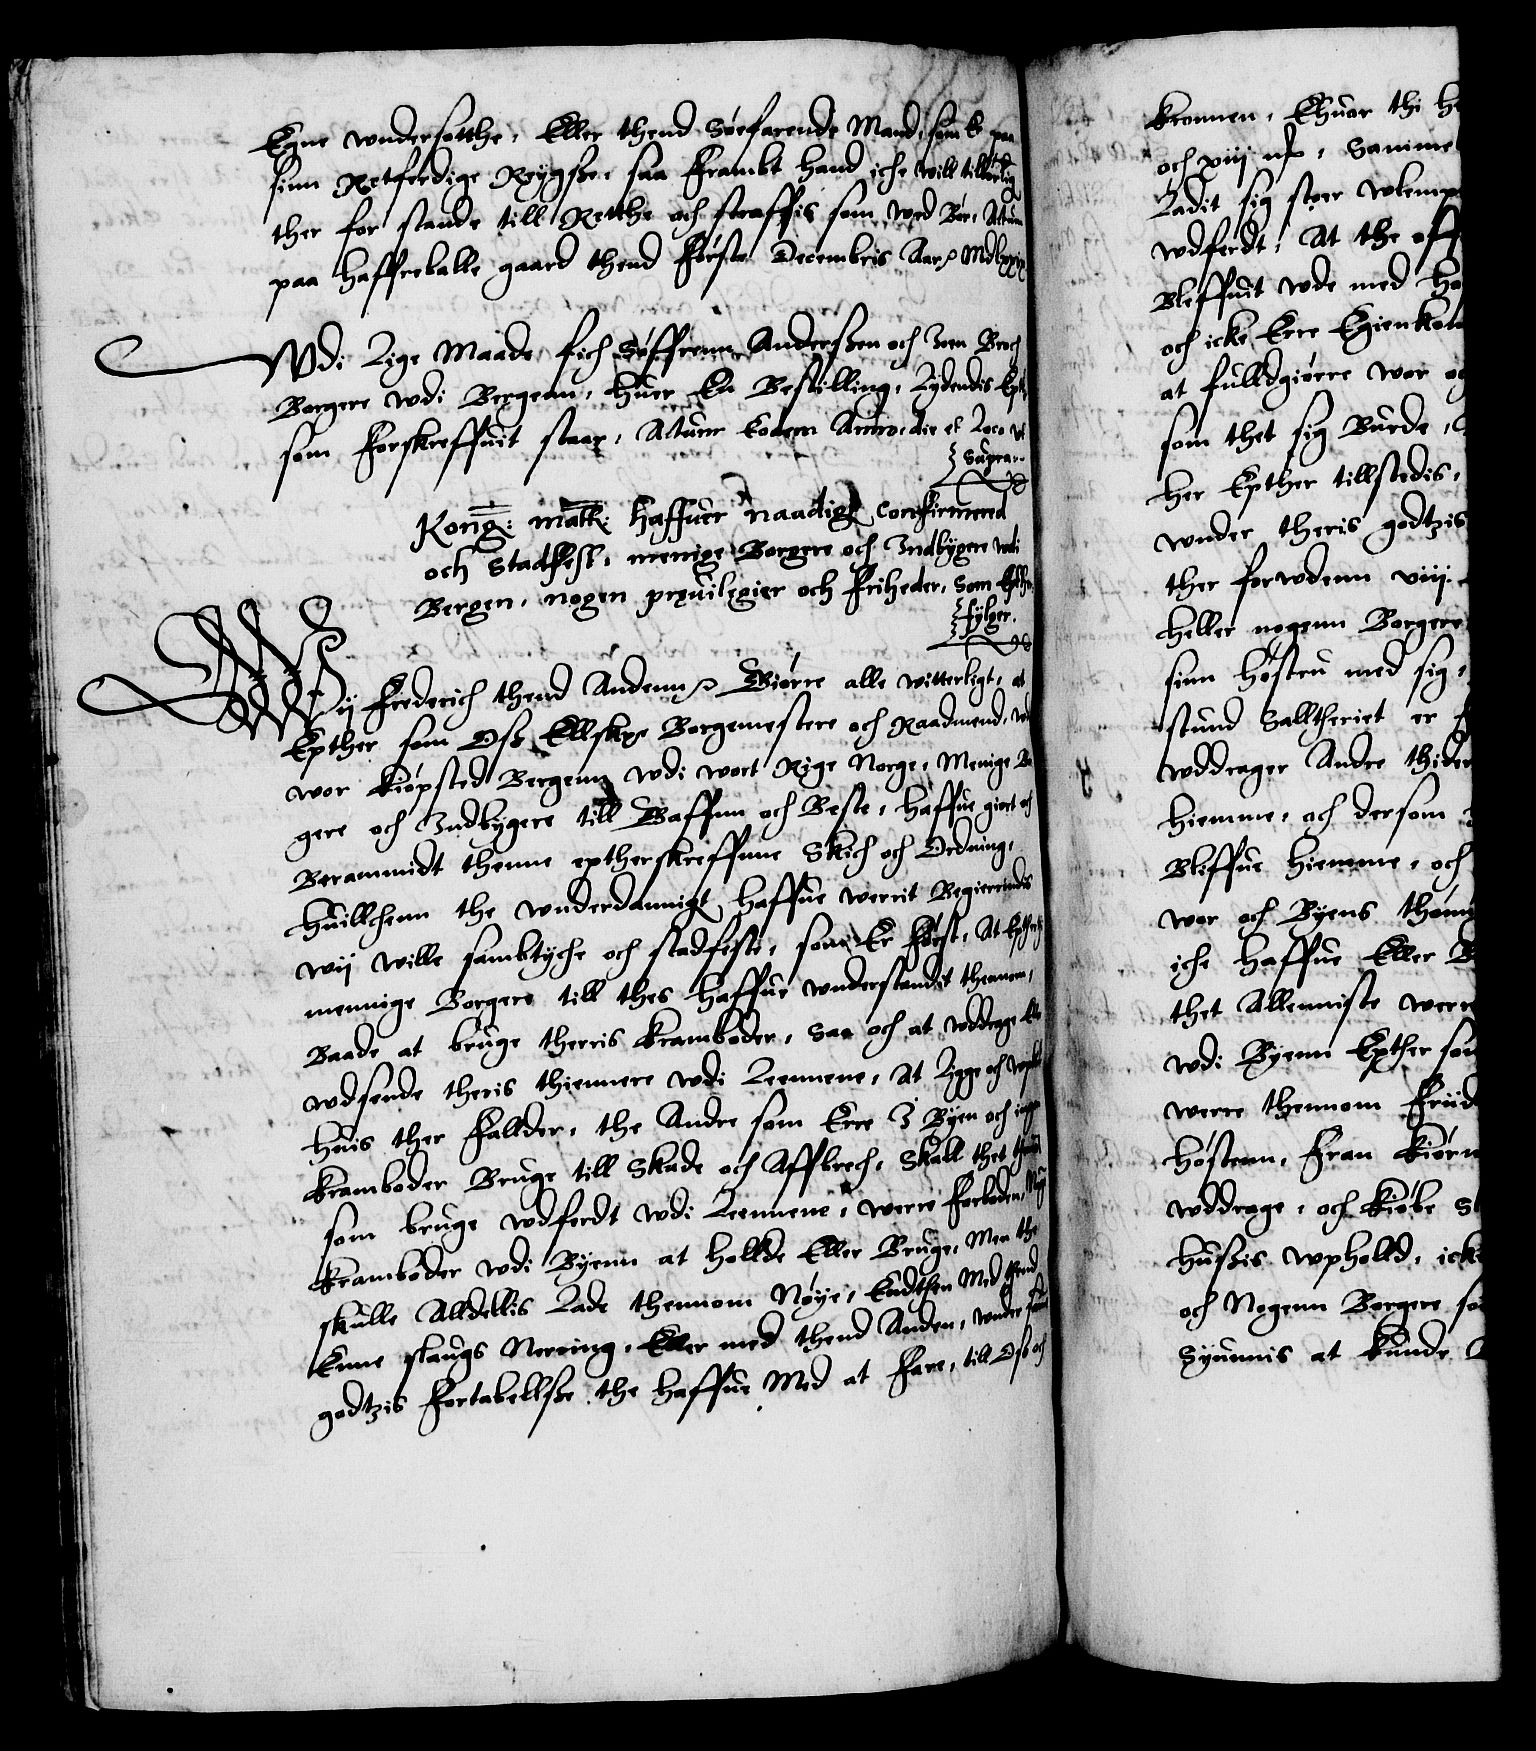 Egne wndersotthe, Eller thend Søefarende Mand, som er paa
sinn Retferdige Reygsze, saa frambt hand iche will tilbørlig
ther for stande till Retthe och straffis som wed Bør, Actum
paa Haffreballe gaard thend første Decembris Aar &c Mdlxxix
Wdi Lige Maade fich Søffrenn Anderszen och Jem Broch
Borgere wdi Bergenn, huer En Bestilling, Lydendis Epther
som forskreffuit staar, Actum Eodem Anno, die et Loco ut
Supra
Kong: Matt: Haffuer naadigst Confirmered
och Stadfest, menige Borgere och Indbygere wdi
Bergen, nogen preuilegier och friheder, Som Epther
følger.
Wy Frederich thend Andenn &c Giøre alle witterligt, at
Epther som Osz Elskge Borgemestere och Raadmend, wdi
wor Kiøpsted Bergenn wdi wort Rige Norge, Menige Bor
gere och Indbygere till Gaffnn och Beste, haffue giort och
Berammidt thenne eptherskreffne Skich och Ordning,
Huillchenn the wnderdannigst haffue werrit Begierendis
wij wille samtyche och stadfeste, som Er først, At Epther
mennige Borgere till thes haffue wnderstandit thennem,
Baade at bruge therris kramboder, saa och at wddrage Eller
wdsende theris thiennere wdi Leennene, At Ligge och
huis ther falder, the Andre som Ere I Byen och ingen
kramboder Bruge till Skade och Affbrech, Skall thet thennem
som bruge wdferdt wdi Leennene, werre forboden, Nogen
kramboder wdi Byenn at hollde Eller Bruge, Men the
skulle Alldellis Lade thennom Nøye, Endthen Med thend
Enne slaugs Nerring, Eller med thend Anden, wnder sam
godtzis fortabellsze the haffue Med at fare, till Osz och
Kronnen, Ehuor thi
och xiij
Ladit sig stoer wlemp
wdferdt, At the aff
Bleffuit wde med
och icke Ere Egienkom
at fulldgiørre wor og
som thet sig Burde,
her Epther tillstedis,
wnder theris godtzis
ther forwdenn viij
heller nogenn Borgere
sinn Høstru med sig,
stund Salltheriet er
wddrager Andre thider
hiemme, och dersom
Bliffue hiemme, och
wor och Byens
iche haffue Eller B
thet Allenniste werre
wdi Byenn Epther som
werre thennom
Høstenn, fran
wddrage, och Kiøbe
huszis wphold, icke
och Nogenn Borgere
Syunnis at kunde